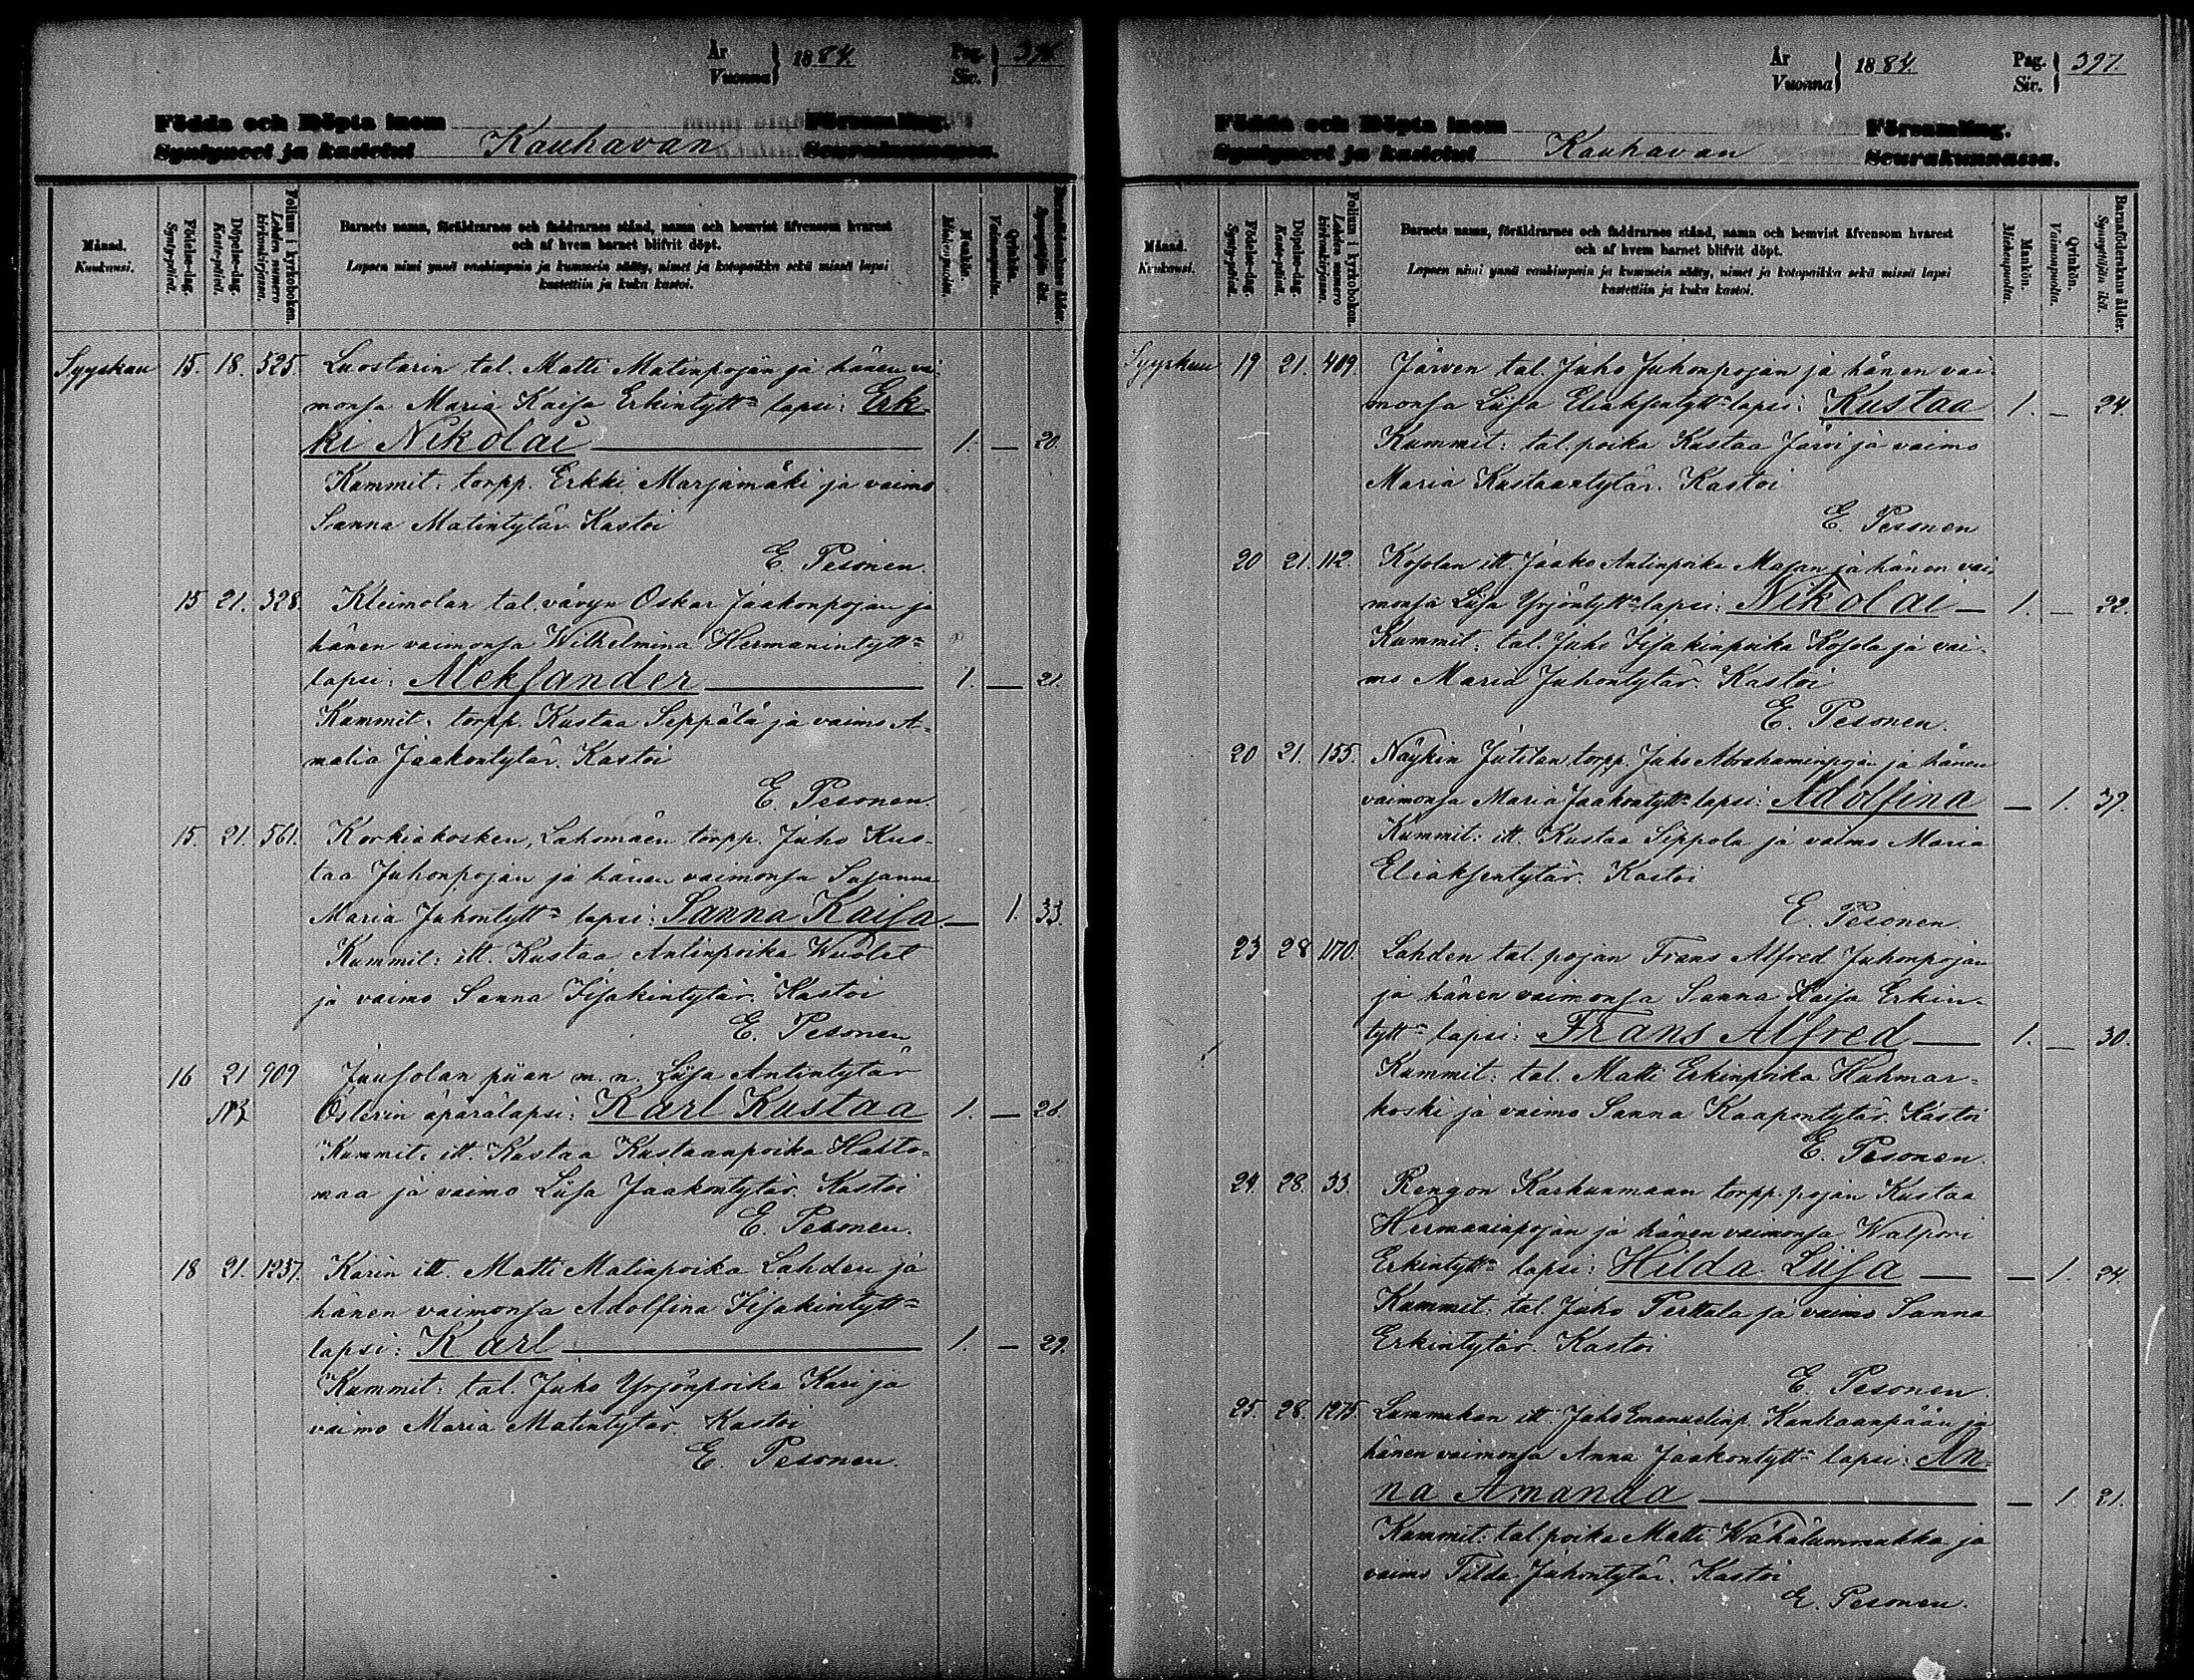 År
Vuonna } 1884. Pag. Siv. } 396.
Födda och Döpta inom Församling.
Syntyneet ja kastetut Kauhavan Seurakunnassa.
Månad. Kuukausi.
Födelse-dag. Synty-päivä.
Döpelse-dag. Kaste-päivä.
Folium i kyrkoboken. Lehden numero kirkonkirjassa.
Barnets namn, föräldrarnes och faddrarnes stånd, namn och hemvist äfvensom hvarest
och af hvem barnet blifvit döpt.
Lapsen nimi ynnä vanhimpain ja kummein sääty, nimet ja kotopaikka sekä missä lapsi
kastettiin ja kuka kastoi.
Mankön. Miehenpuolta.
Qvinkön. Vaimonpuolta.
Barnaföderskans ålder. Synnyttäjän ikä.
Syyskuu 15. 18. 525. Luostarin tal. Matti Matinpojan ja hänen vai-
monsa Maria Kaisa Erkintytt= lapsi: Erk-
ki Nikolai 1. — 20.
Kummit: torpp. Erkki Marjamäki ja vaimo
Sanna Matintytär Kastoi
E. Pesonen.
15 21. 328. Kleimolan tal. vävyn Oskar Jaakonpojan ja
hänen vaimonsa Wilhelmina Hermanintytt=
lapsi: Aleksander 1. — 21.
Kummit: torpp. Kustaa Seppälä ja vaimo A-
malia Jaakontytär. Kastoi
E. Pesonen.
15. 21. 561. Korkiakosken, Lahomäen torpp. Juho Kus-
taa Juhonpojan ja hänen vaimonsa Susanna
Maria Juhontytt= lapsi: Sanna Kaisa. — 1. 33.
Kummit: itt. Kustaa Antinpoika Wuolet
ja vaimo Sanna Iisakintytär. Kastoi
E. Pesonen
16 21 909 Juusolan piian m. n. Liisa Antintytär
Österin äpärälapsi: Karl Kustaa 1. — 26.
Kummit: itt. Kustaa Kustaanpoika Hauto-
maa ja vaimo Liisa Jaakontytär. Kastoi
E. Pesonen.
18 21. 1237. Karin itt. Matti Matinpoika Lahden ja
hänen vaimonsa Adolfina Iisakintytt=
lapsi: Karl 1. — 29.
Kummit: tal. Juho Yrjönpoika Kari ja
vaimo Maria Matintytär. Kastoi
E. Pesonen.
År
Vuonna } 1884. Pag. Siv. } 397.
Födda och Döpta inom Församling.
Syntyneet ja kastetut Kauhavan Seurakunnassa.
Månad. Kuukausi.
Födelse-dag. Synty-päivä.
Döpelse-dag. Kaste-päivä.
Folium i kyrkoboken. Lehden numero kirkonkirjassa.
Barnets namn, föräldrarnes och faddrarnes stånd, namn och hemvist äfvensom hvarest
och af hvem barnet blifvit döpt.
Lapsen nimi ynnä vanhimpain ja kummein sääty, nimet ja kotopaikka sekä missä lapsi
kastettiin ja kuka kastoi.
Mankön. Miehenpuolta.
Qvinkön. Vaimonpuolta.
Barnaföderskans ålder. Synnyttäjän ikä.
Syyskuu 19 21. 409. Järven tal. Juho Juhonpojan ja hänen vai-
monsa Liisa Eliaksentytt= lapsi: Kustaa 1. — 24.
Kummit: tal. poika Kustaa Järvi ja vaimo
Maria Kustaantytär. Kastoi
E. Pesonen
20 21. 112. Kosolan itt. Jaako Antinpoika Majan ja hänen vai-
monsa Liisa Yrjöntytt= lapsi: Nikolai — 1. — 22.
Kummit: tal. Juho Iisakinpoika Kosola ja vai-
mo Maria Juhontytär. Kastoi
E. Pesonen.
20 21. 155. Näykin Jutilan torpp. Juho Abrahaminpojan ja hänen
vaimonsa Maria Jaakontytt= lapsi: Adolfina — 1. 39.
Kummit: itt. Kustaa Seppola ja vaimo Maria
Eliaksentytär. Kastoi
E. Pesonen
23 28 1170. Lahden tal. pojan Frans Alfred Juhonpojan
ja hänen vaimonsa Sanna Kaisa Erkin-
tytt= lapsi: Frans Alfred — 1. — 30.
Kummit: tal. Matti Erkinpoika Huhmar-
koski ja vaimo Sanna Kaapontytär. Kastoi
E. Pesonen.
24. 28. 33. Rengon Karhunmaan torpp. pojan Kustaa
Hermaninpojan ja hänen vaimonsa Walpori
Erkintytt= lapsi: Hilda Liisa — — 1. 24.
Kummit: tal. Juho Perttula ja vaimo Sanna
Erkintytär. Kastoi
E. Pesonen.
25. 28. 1275. Lummukan itt. Juho Emanuelinp. Kankaanpään ja
hänen vaimonsa Anna Jaakontytt= lapsi: An-
na Amanda — 1. 21.
Kummit: tal. poika Matti Wähälummukka ja
vaimo Tilda Juhontytär. Kastoi
E. Pesonen.